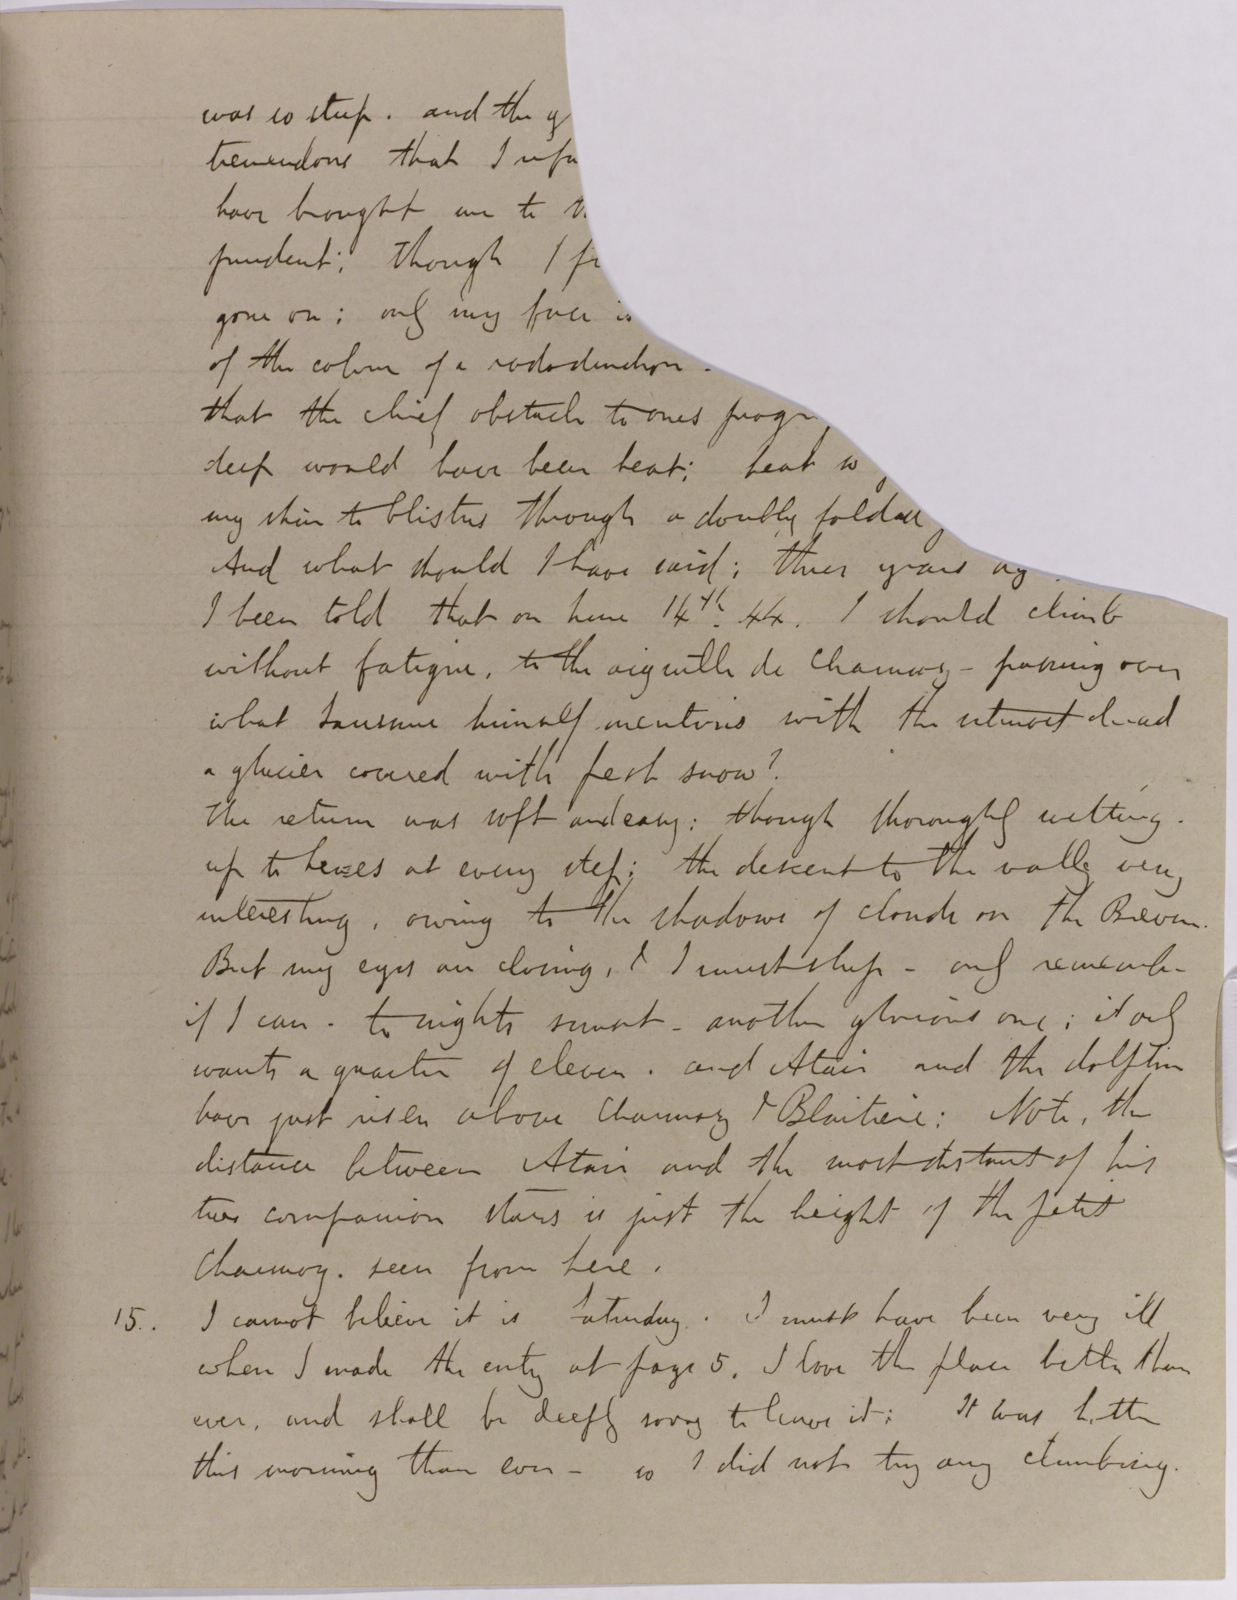 was so steep. and the g
tremendous that I refu
have brought me to th
prudent; though I fe
gone on; only my face is
of the colour of a rododendron.
that the chief obstacle to ones progr
deep would have been heat; heat so
my skin to blisters through a doubly folded
And what should I have said; three years ag
I been told that on June 14th. 44. I should climb
without fatigue, to the aiguille de Charmoz - passing over
what Saussure himself mentions with the utmost dread
a glacier covered with fresh snow?
The return was soft and easy: though thoroughly wetting.
up to knees at every step; the descent to the valley very
interesting, owing to the shadows of clouds on the Breven.
But my eyes are closing, & I must sleep - only remember
if I can. to nights sunset - another glorious one; it only
wants a quarter of eleven. and Atair and the dolphin
have just risen above Charmoz & Blaitiere: Note, the
distance between Atair and the most distant of his
two companion stars is just the height of the petit
Charmoz. seen from here.
15. I cannot believe it is Saturday. I must have been very ill
when I made the entry at page 5. I love the place better than
ever, and shall be deeply sorry to leave it; It was hotter
this morning than ever - so I did not try any climbing.